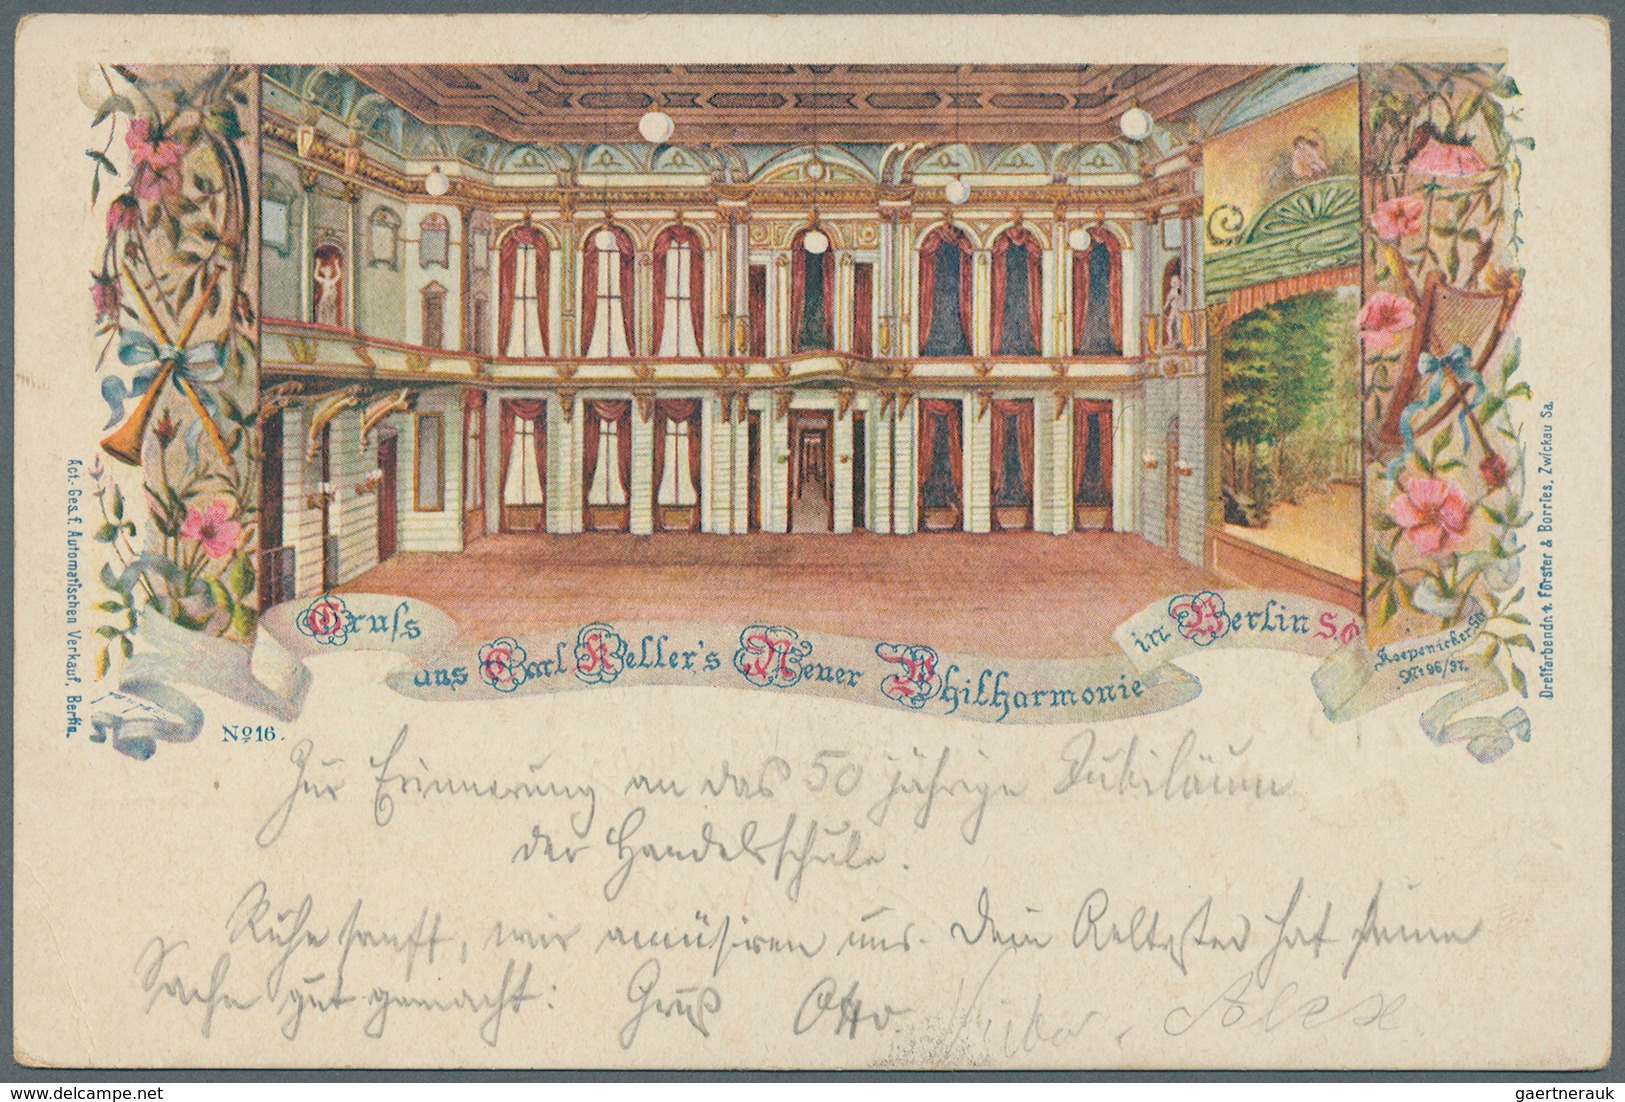 Gruss
aus Carl Keller's Neuer Philharmonie
in Berlin S.O
Koepenicker St.
No: 96/97.
Act.-Ges. f. Automatischen Verkauf, Berlin.
Dreifarbendr. v. Förster & Borries, Zwickau Sa.
No 16.
Zur Erinnerung an das 50 jährige Jubiläum
der Handelsschule.
Ruhe sanft, wir amüsiren uns. Dein Aeltester hat seine
Sache gut gemacht: Gruß Otto
gaertnerauk / DELCAMPE